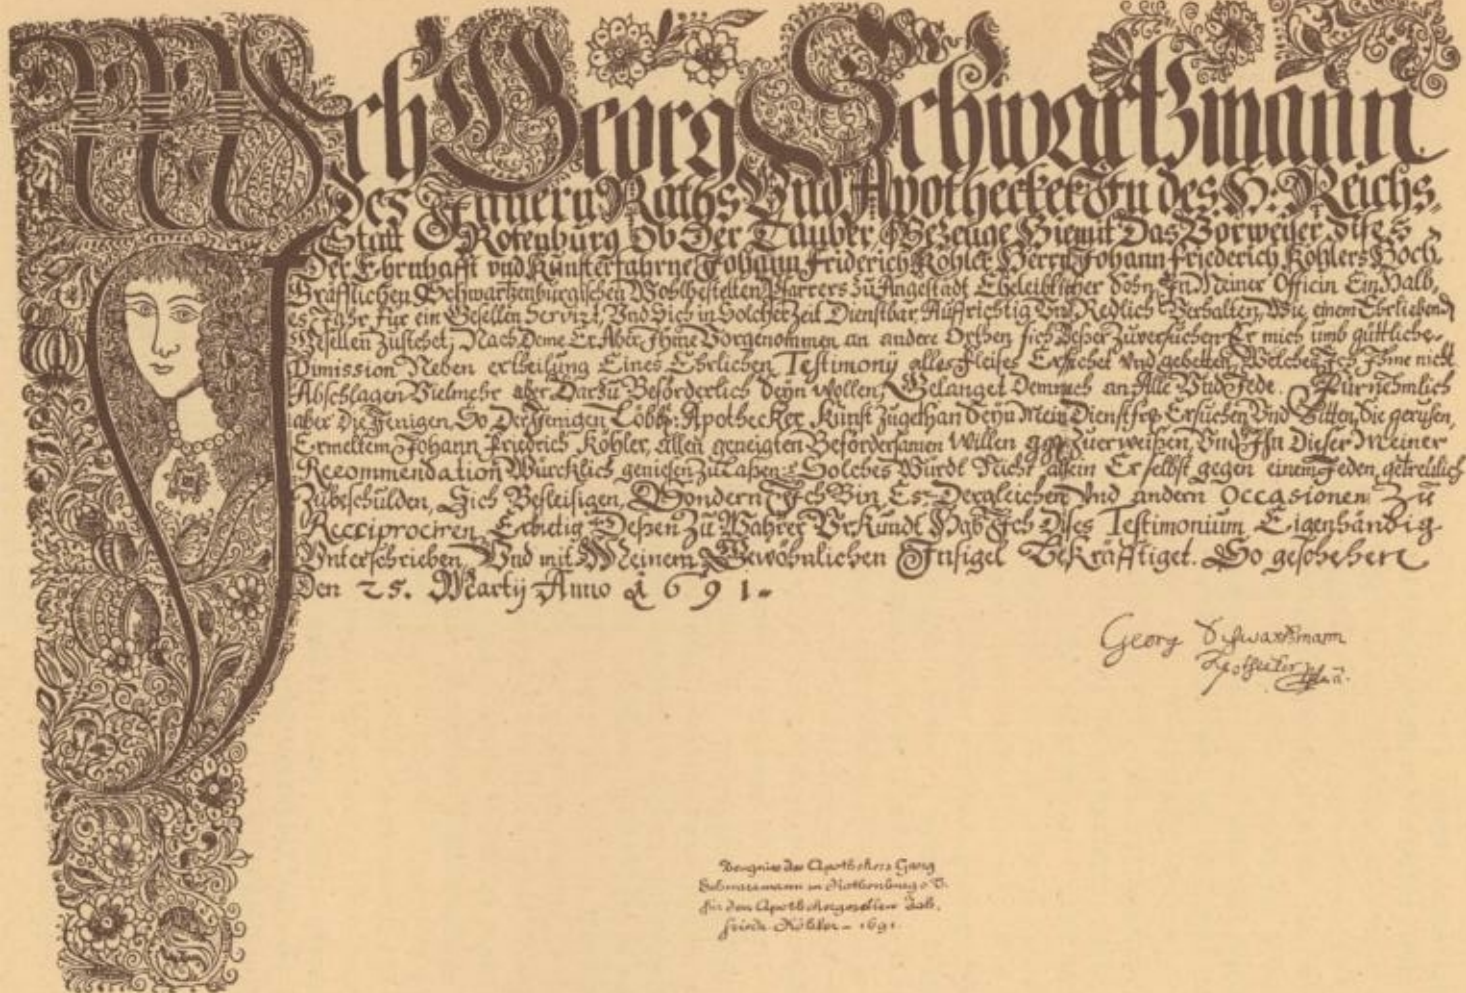 Ich Georg Schwartzmann
Des Innern Raths Und Apothecker In des H: Reichs,
Statt Rotenburg Ob Der Tauber Bezeuge Hiemit Das Vorweiser dises
Der Ehrnhafft und Kunsterfahrne Johann Friderich Köhler Herrn Johann Friederich Köhlers Hoch
Gräfflichen Schwartzenburgischen Wohlbestelten Pfarrers zu Angestädt Eheleiblicher Sohn In Meiner Officin Ein Halb,
es Jahr für ein Gesellen Servirt, Und Sich in Solcher Zeit Dienstbar Auffrichtig Und Redlich Verhalten, Wie einem Ehrliebend
Gesellen Zustehet; Nach Deme Er Aber Ihme Vorgenommen an andere Orthen sich Beßer Zuversuchen Er mich umb güttliche
Dimission Neben ertheilung Eines Ehrlichen Testimonij alles Fleises Ersuchet Und gebetten, Welches Ich Ihme nicht
Abschlagen Vielmehr aber Darzu Beförderlich Seyn Wollen, Gelanget Demnach an Alle Und Jede. Fürnehmlich
aber Die Jenigen So Der Jenigen Löbl: Apothecker Kunst Zugethan Seyn Mein Dienstfrs Ersuchen Und Bitten, Sie geruhen,
Ermeltem Johann Friedrich Köhler, Allen geneigten Befördersamen Willen Zuerweißen, Und Ihn Dieser Meiner
Recommendation Würcklich genießen Zu Laßen Solches Würdt Nicht allein Er selbst gegen einem Jeden getreülich
Zubeschulden, Sich Befleisigen, Sondern Ich Bin Es Dergleichen Und andern Occasionen Zu
Reciprociren Erbietig Deßen Zu Wahrer Urkundt Hab Ich Dises Testimonium Eigenhändig
Unterschrieben Und mit Meinem Gewöhnlichen Insigel Bekräfftiget. So geschehen
Den 25. Martij Anno 1691.
Georg Schwartzmann
Apothecker
Zeugnis des Apothekers Georg
Schwarzmann in Rothenburg o. T.
für den Apothekergesellen Joh.
Friedr. Köhler – 1691